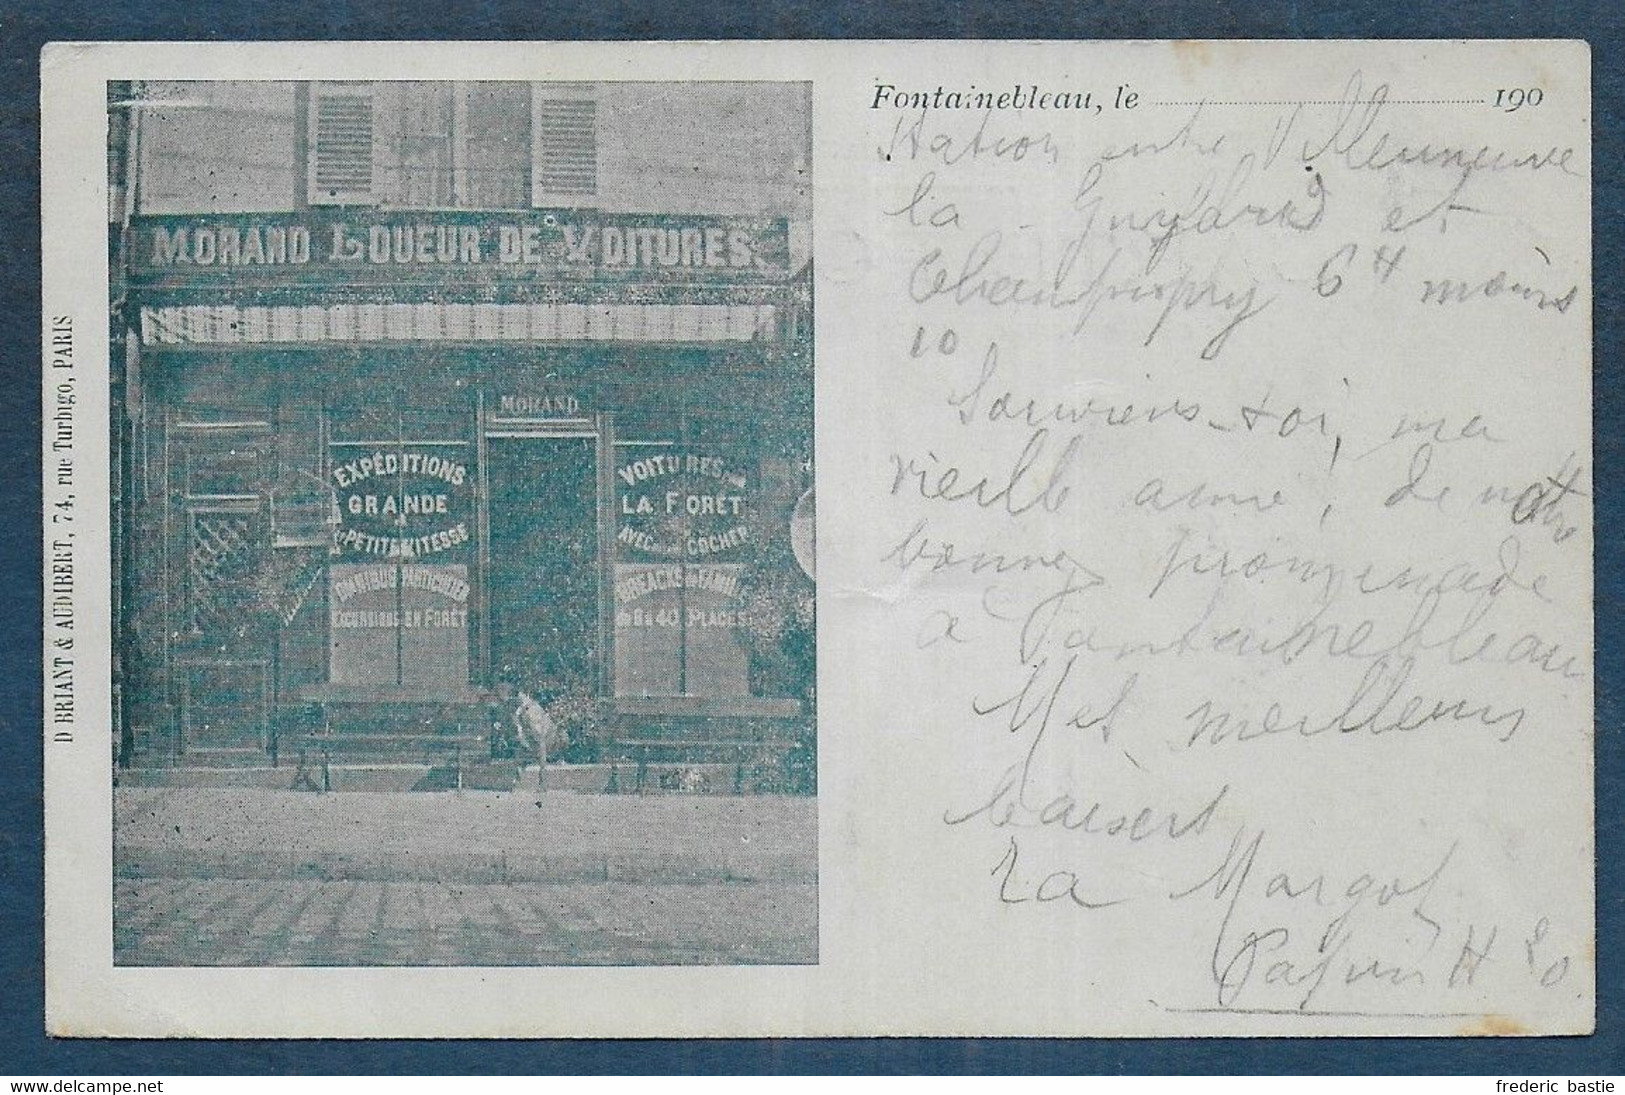 D BRIANT & AUDIBERT, 74, rue Turbigo, PARIS
MORAND LOUEUR DE VOITURES
MORAND
EXPÉDITIONS
GRANDE
& PETITE VITESSE
PARTICULIER
EXCURSIONS EN FORÊT
VOITURES
LA FORET
AVEC COCHER
BREACKS DE FAMILLE
DE 8 À 40 PLACES
Fontainebleau, le 190
Station entre Villeuneuve
la Guyard et
Champigny 6 H moins
10
Souviens-toi, ma
vieille amie, de notre
bonne promenade
à Fontainebleau
Mes meilleurs
baisers
La Margot
frederic bastie